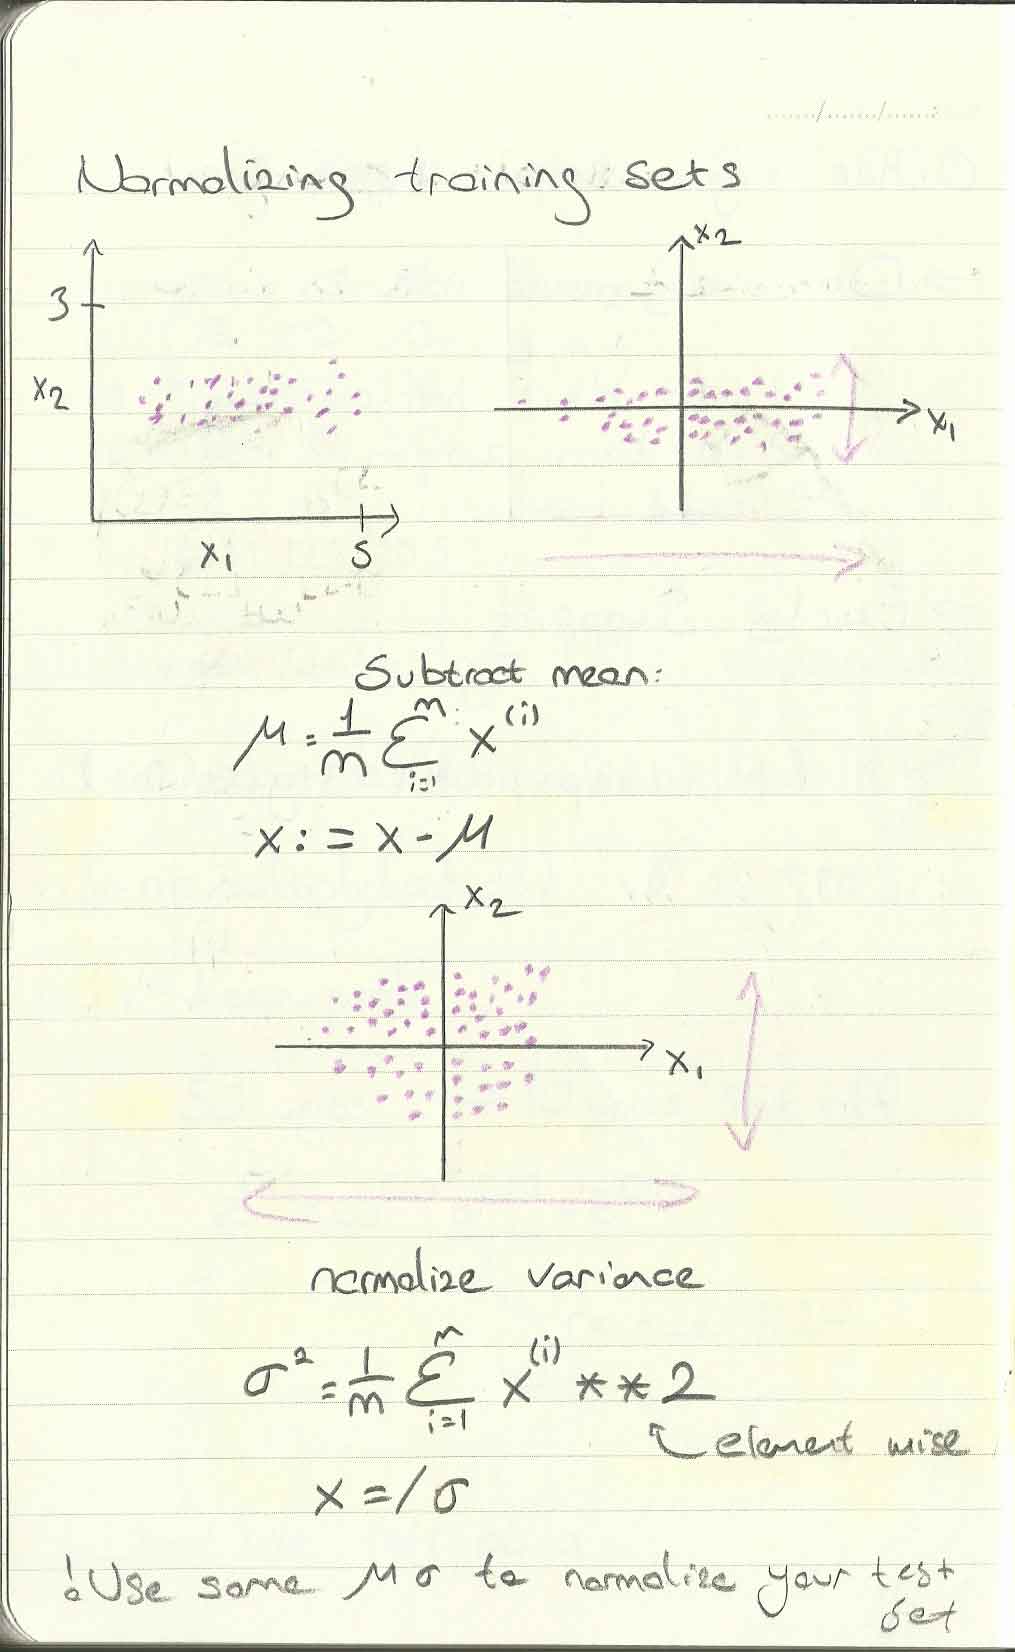 Normalizing training sets
x2
3
x2
x1
x1
5
Subtract mean:
μ = 1/m Σ_{i=1}^{m} x^(i)
x := x - μ
x2
x1
normalize variance
σ² = 1/m Σ_{i=1}^{m} x^(i) ** 2
element wise
x =/ σ
! Use same μ σ to normalize your test
set